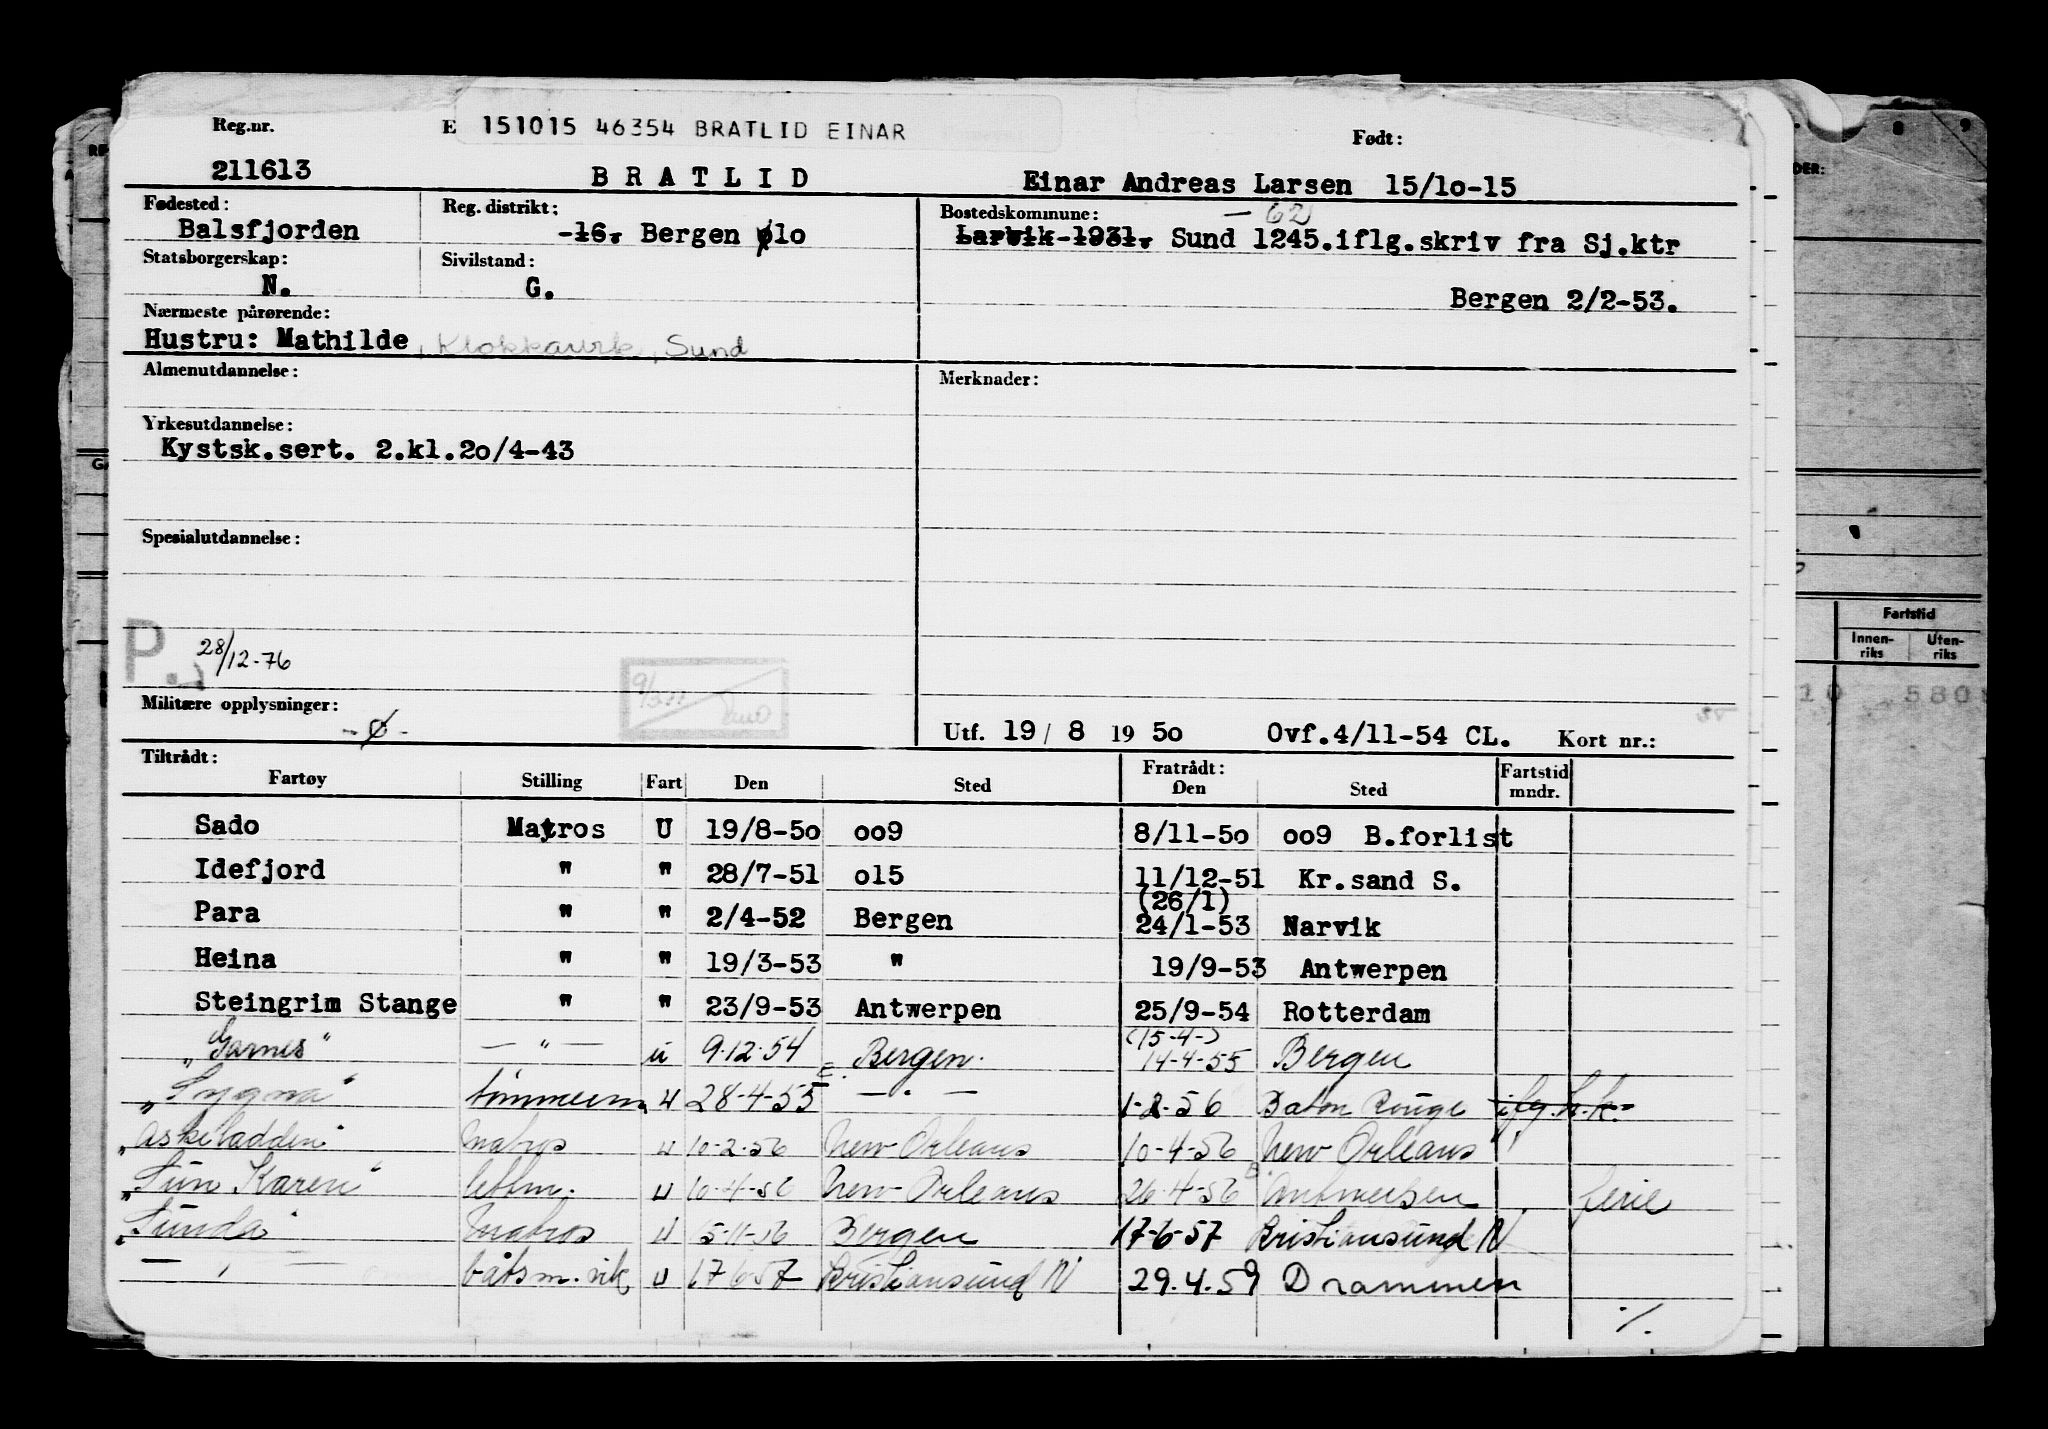 Reg.nr. E 151015 46354 BRATLID EINAR Født:
211613 BRATLID Einar Andreas Larsen 15/1o-15
Fødested: Reg. distrikt: Bostedskommune: — 62
Balsfjorden -16. Bergen ø1o Larvik-1931. Sund 1245.iflg.skriv fra Sj.ktr
Statsborgerskap: Sivilstand:
N. G. Bergen 2/2-53.
Nærmeste pårørende:
Hustru: Mathilde, Klokkarvik, Sund
Almenutdannelse: Merknader:
Yrkesutdannelse:
Kystsk.sert. 2.kl.2o/4-43
Spesialutdannelse:
P. 28/12-76
Militære opplysninger:
-ø- Utf. 19 / 8 19 5o Ovf.4/11-54 CL. Kort nr.:
Tiltrådt: Fratrådt: Fartstid
Fartøy Stilling Fart Den Sted Den Sted mndr.
Sado Matros U 19/8-5o oo9 8/11-5o oo9 B.forlist
Idefjord " " 28/7-51 o15 11/12-51 Kr.sand S.
(26/1)
Para " " 2/4-52 Bergen 24/1-53 Narvik
Heina " " 19/3-53 " 19/9-53 Antwerpen
Steingrim Stange " " 23/9-53 Antwerpen 25/9-54 Rotterdam
(15-4-)
"Garnes" — " — u 9.12.54 Bergen. 14-4-55 Bergen
"Lygna" tømmerm. u 28-4-55 — " — 1-2-56 Baton Rouge iflg. h.k.
"Askeladden" matros u 10-2-56 New Orleans 10-4-56 New Orleans
"Sun Karen" lettm. u 10-4-56 New Orleans 26-4-56 Antwerpen ferie
"Sunda" matros u 15-11-56 Bergen 17-6-57 Kristiansund N
— " — båtsm. vik u 17 6 57 Kristiansund N 29.4.59 Drammen
./.
8 9
DER:
Fartstid
Innen-riks Uten-riks
10 580